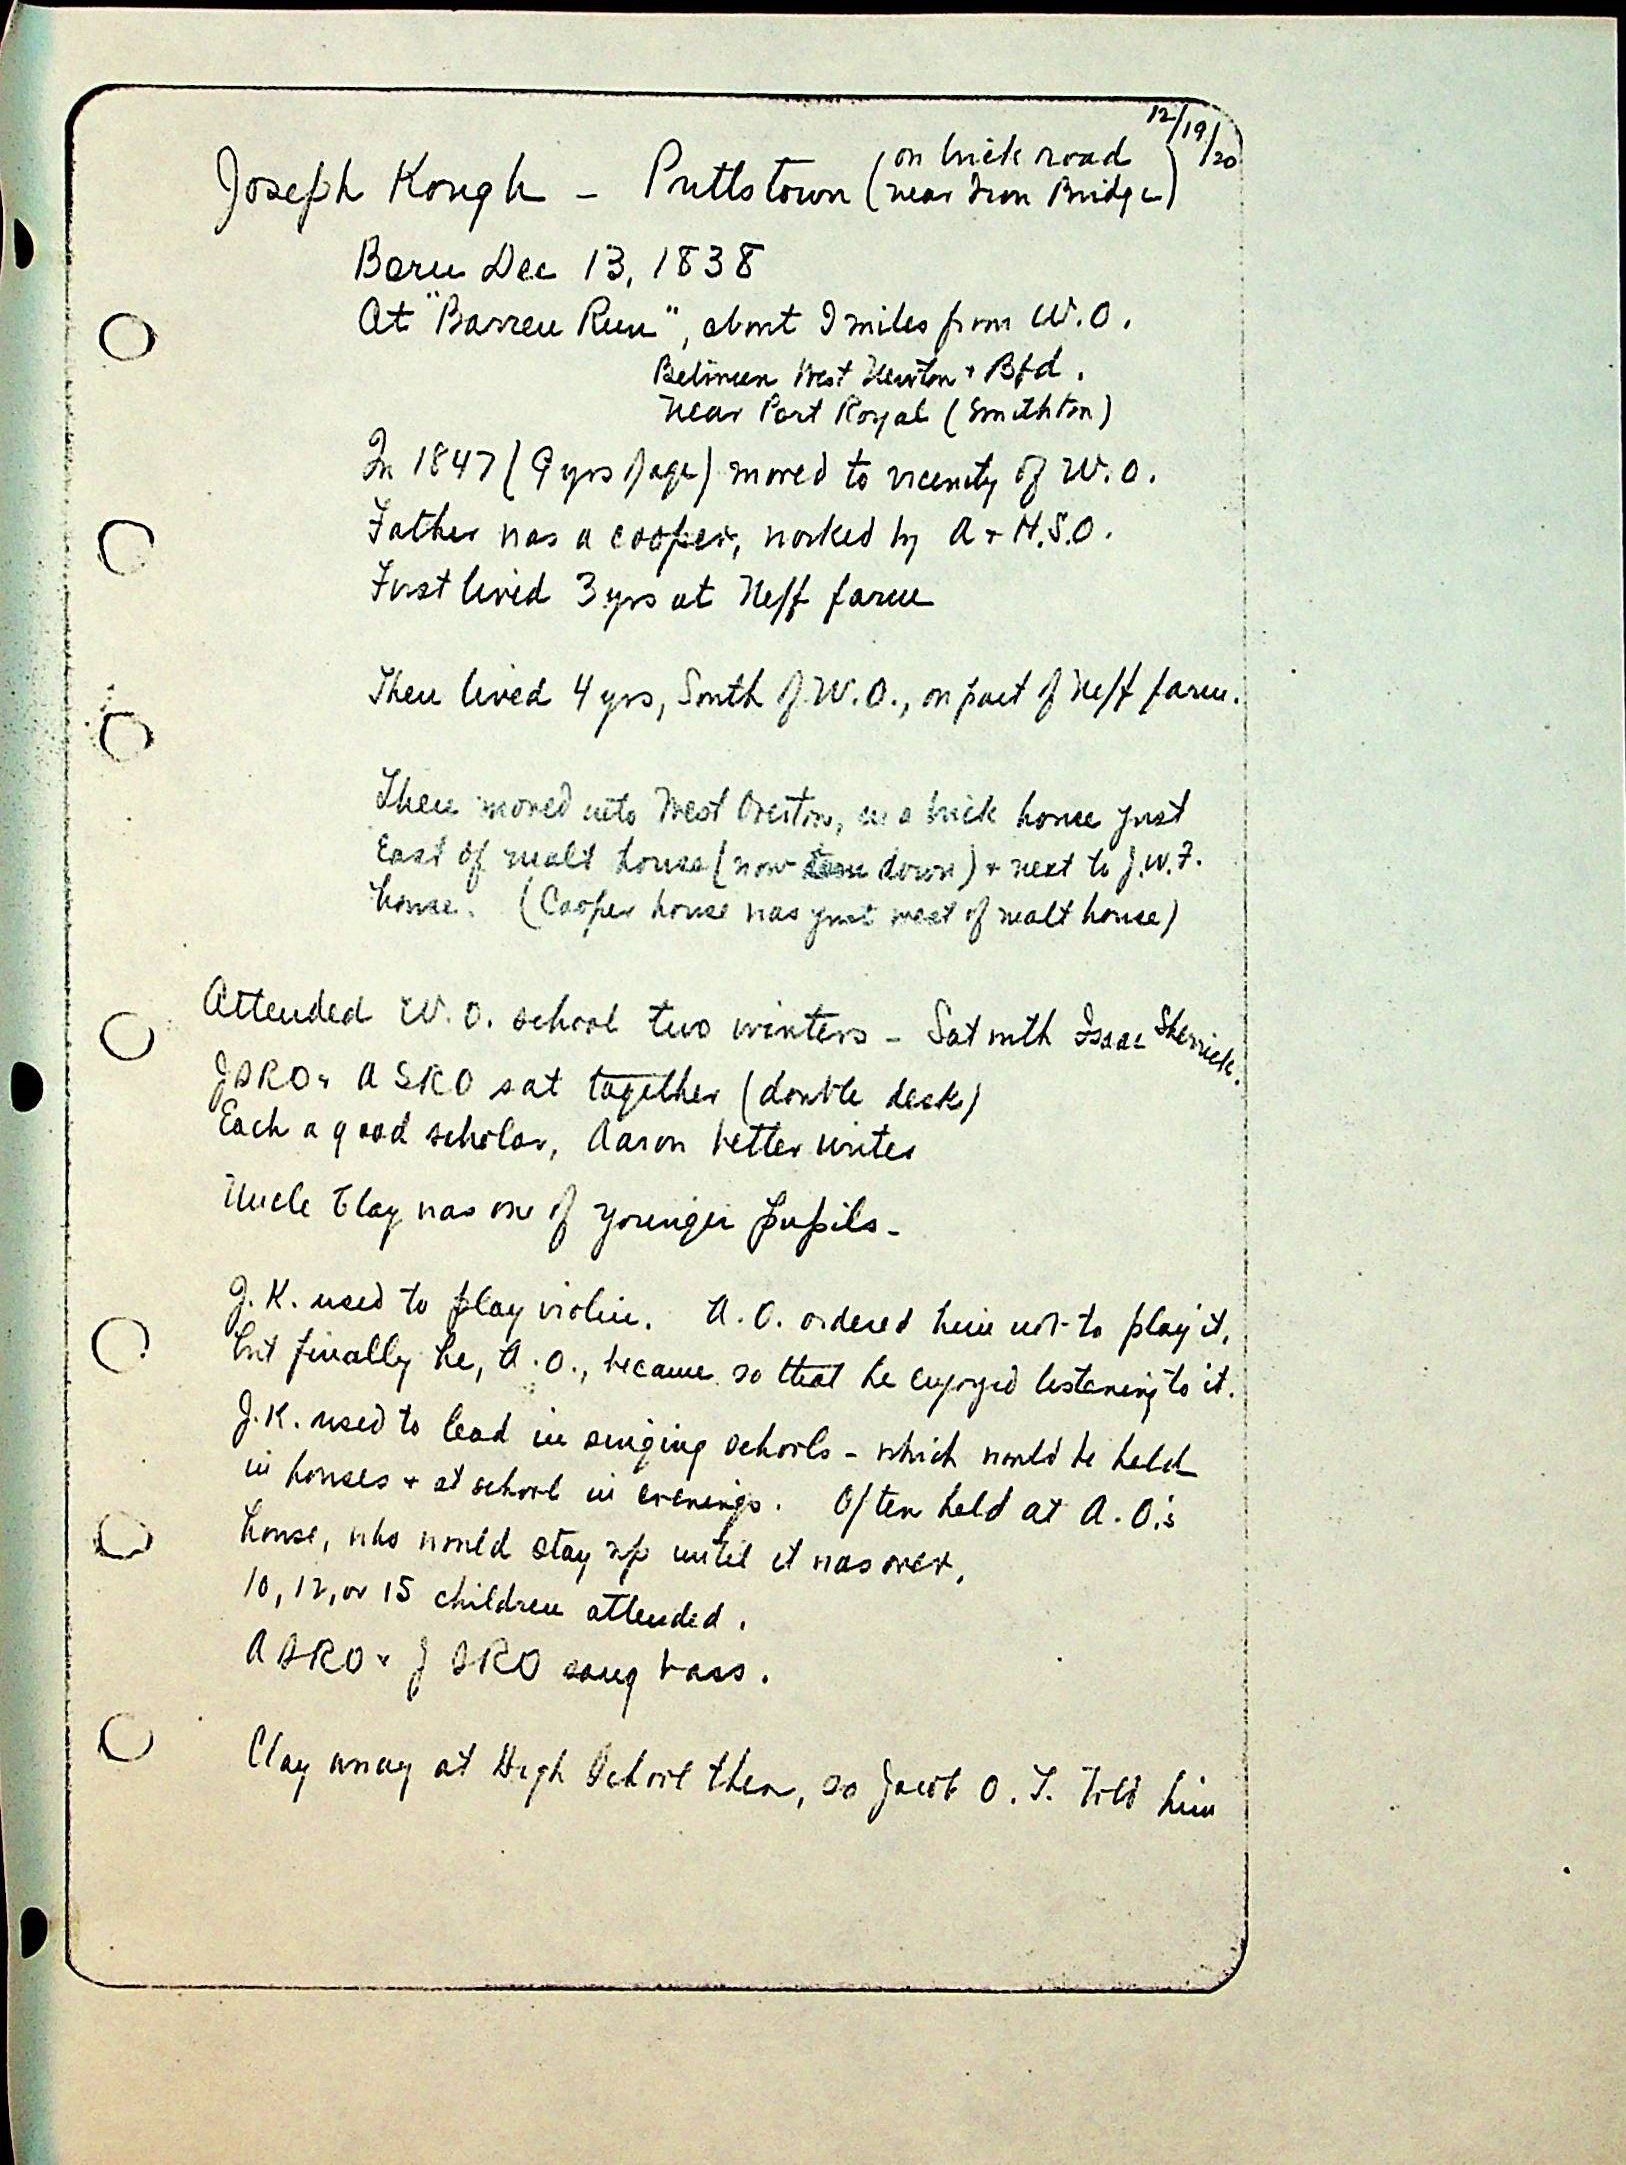 12/19/20
Joseph Kough - Prittstown (on brick road near Iron Bridge)
Born Dec 13, 1838
At "Barren Run", about 9 miles from W.O.
Between West Newton + Bfd.
Near Port Royal (Smithton)
In 1847 (9 yrs of age) moved to vicinity of W.O.
Father was a cooper, worked by A + H.S.O.
First lived 3 yrs at Neff farm
Then lived 4 yrs, South of W.O., on part of Neff farm.
Then moved into West Overton, in a brick house just
East of malt house (now torn down) + next to J.W.F.
house. (Cooper house was just west of malt house)
Attended W.O. school two winters - Sat with Isaac Sherrick.
JSRO + ASRO sat together (double desk)
Each a good scholar, Aaron better writer
Uncle Clay was one of younger pupils -
J.K. used to play violin. A.O. ordered him not to play it,
but finally he, A.O., became so that he enjoyed listening to it.
J.K. used to lead in singing schools - which would be held
in houses + at school in evenings. Often held at A.O.'s
house, who would stay up until it was over.
10, 12, or 15 children attended.
ASRO + JSRO sang bass.
Clay away at High School then, so Jacob O. T. told him